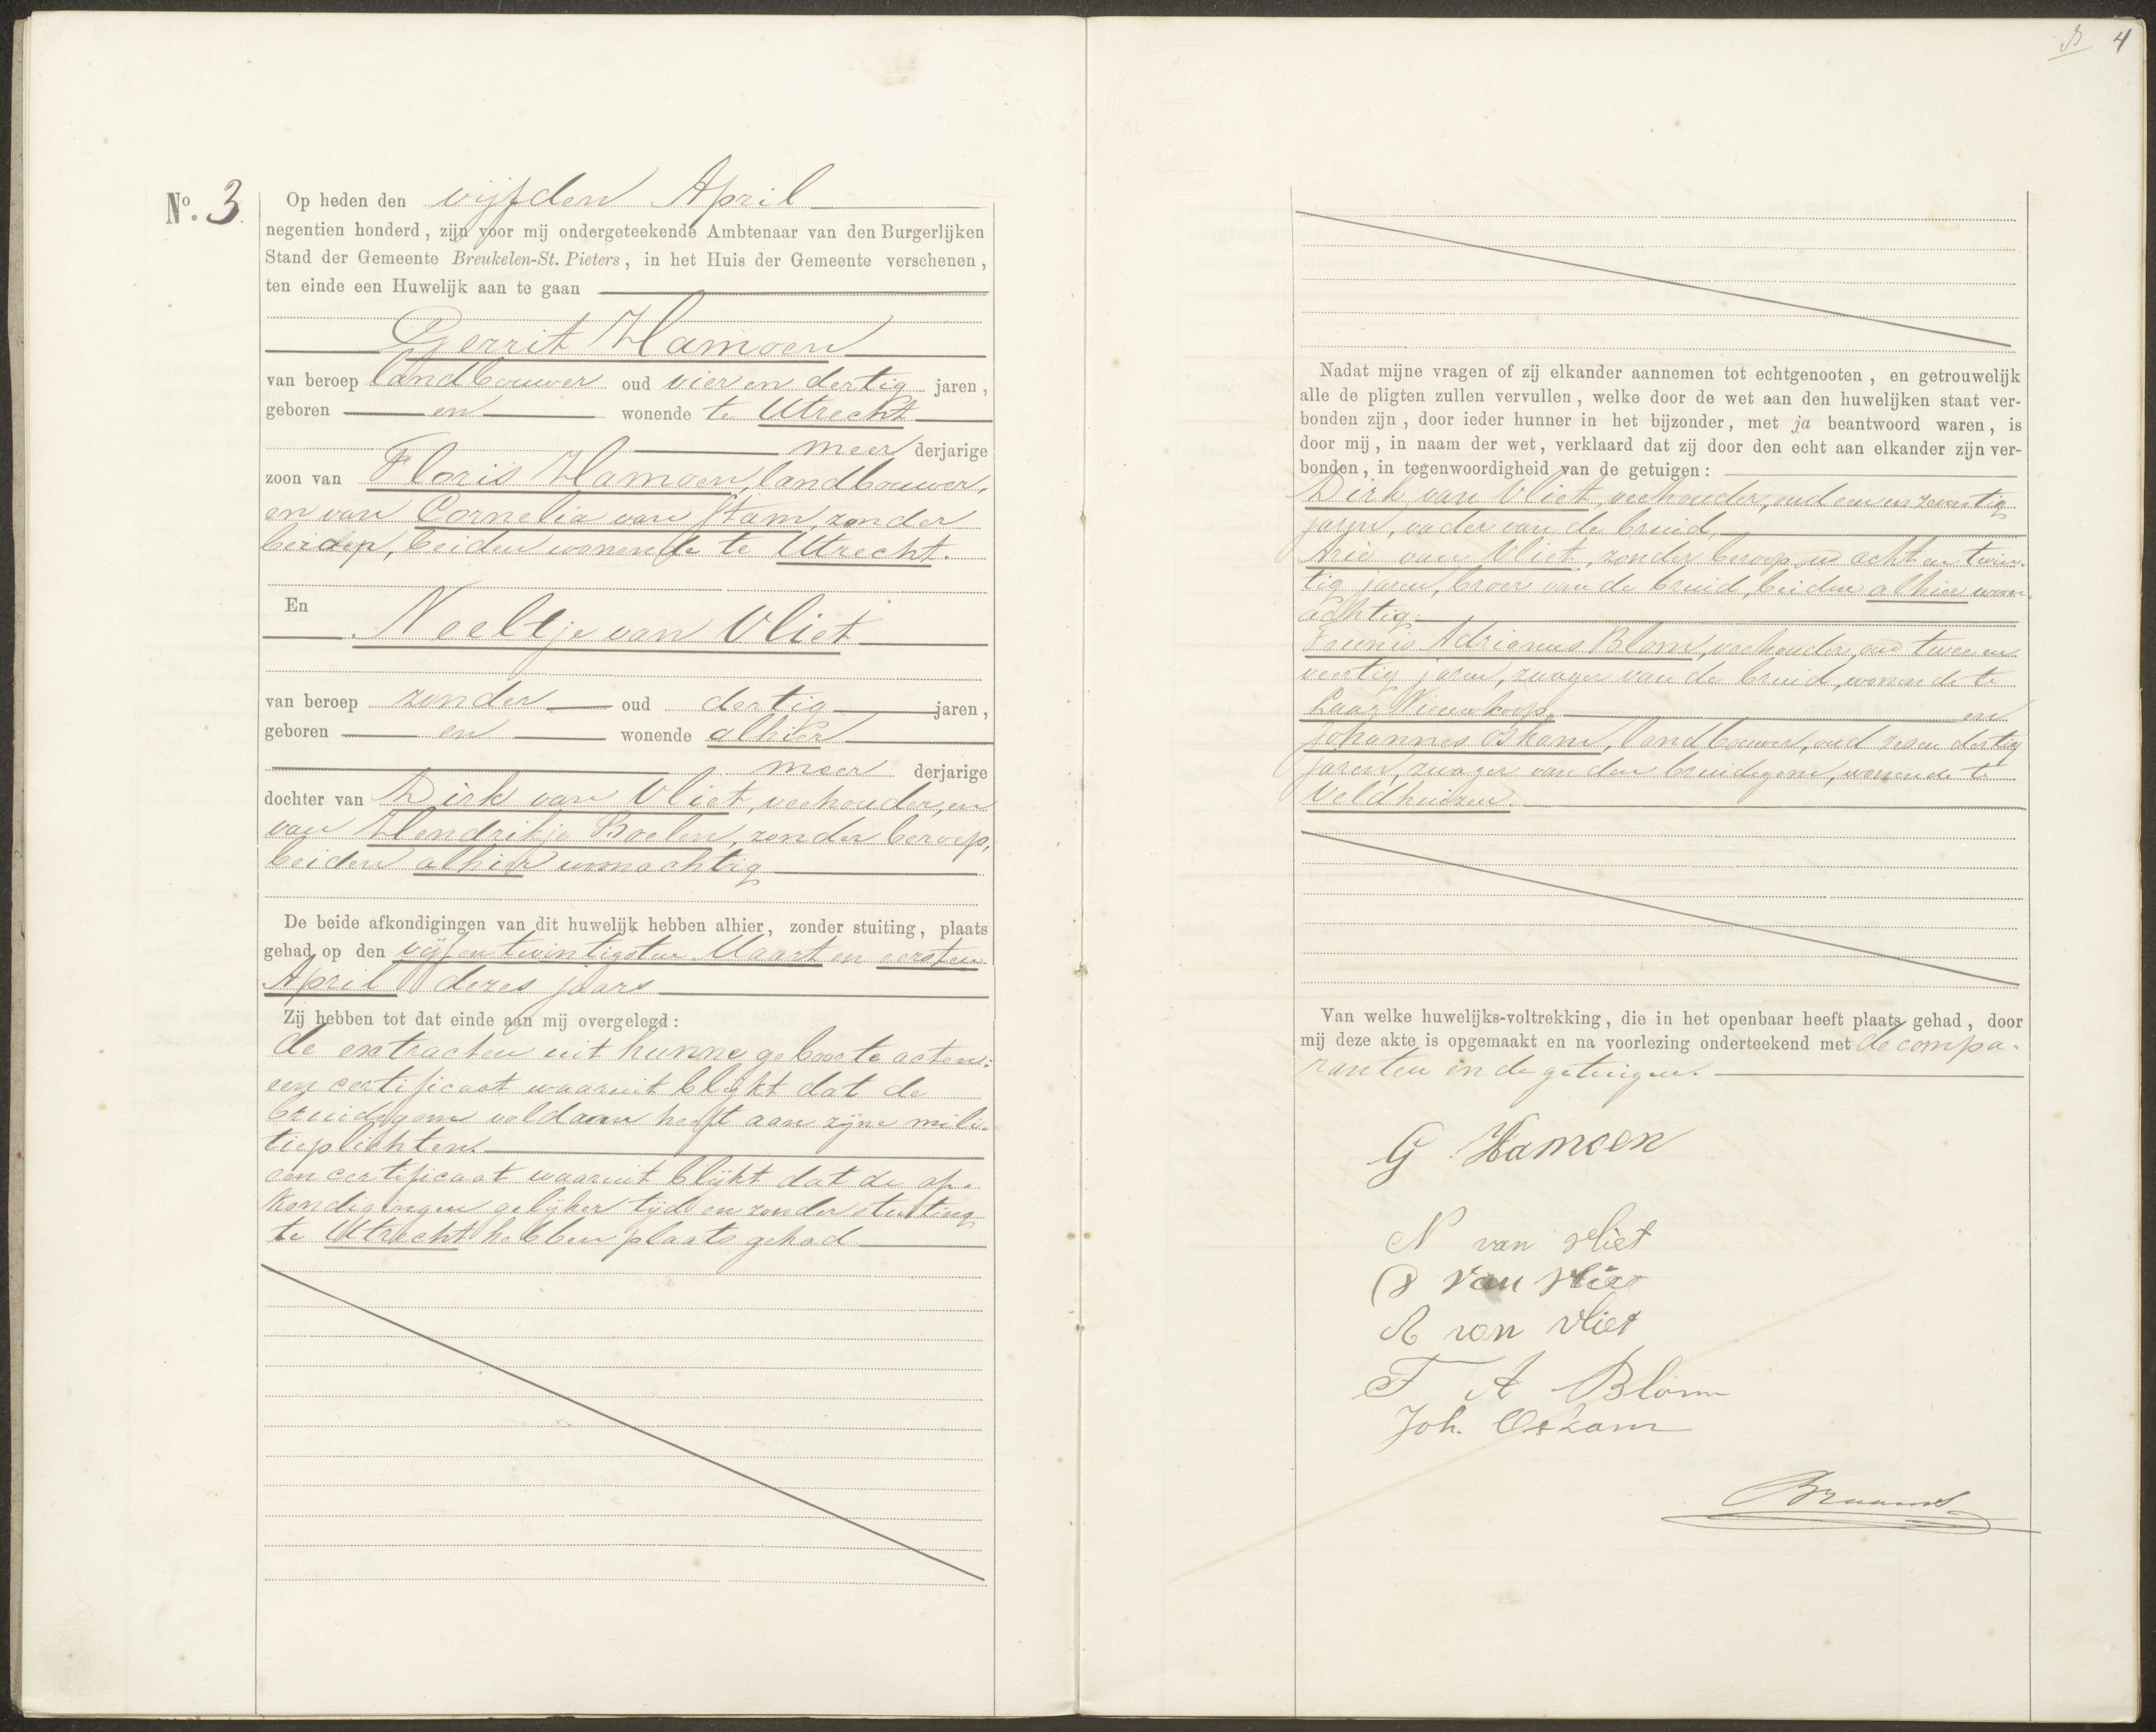 No. 3.
Op heden den vijfden April
negentien honderd, zijn voor mij ondergeteekende Ambtenaar van den Burgerlijken
Stand der Gemeente Breukelen-St. Pieters, in het Huis der Gemeente verschenen,
ten einde een Huwelijk aan te gaan
Gerrit Hamoen
van beroep landbouwer oud vier en dertig jaren,
geboren en wonende te Utrecht
meer derjarige
zoon van Floris Hamoen, landbouwer,
en van Cornelia van Stam, zonder
beroep, beiden wonende te Utrecht.
En
Neeltje van Vliet
van beroep zonder oud dertig jaren,
geboren en wonende alhier
meer derjarige
dochter van Dirk van Vliet, veehouder, en
van Hendrikje Boelen, zonder beroep,
beiden alhier woonachtig
De beide afkondigingen van dit huwelijk hebben alhier, zonder stuiting, plaats
gehad op den vijf en twintigsten Maart en eersten
April dezes jaars
Zij hebben tot dat einde aan mij overgelegd:
de extracten uit hunne geboorte acten:
een certificaat waaruit blijkt dat de
bruidegom voldaan heeft aan zijne mili-
tieplichten.
een certificaat waaruit blijkt dat de af-
kondigingen gelijker tijd en zonder stuiting
te Utrecht hebben plaats gehad
4
Nadat mijne vragen of zij elkander aannemen tot echtgenooten, en getrouwelijk
alle de pligten zullen vervullen, welke door de wet aan den huwelijken staat ver-
bonden zijn, door ieder hunner in het bijzonder, met ja beantwoord waren, is
door mij, in naam der wet, verklaard dat zij door den echt aan elkander zijn ver-
bonden, in tegenwoordigheid van de getuigen:
Dirk van Vliet, veehouder, oud een en zeventig
jaren, vader van de bruid,
Arie van Vliet, zonder beroep, oud acht en twin-
tig jaren, broer van de bruid, beiden alhier woon-
achtig.
Teunis Adrianus Blom, veehouder, oud twee en
veertig jaren, zwager van de bruid, wonende te
Laag Nieuwkoop, en
Johannes Oskam, landbouwer, oud zes en dertig
jaren, zwager van den bruidegom, wonende te
Veldhuizen.
Van welke huwelijks-voltrekking, die in het openbaar heeft plaats gehad, door
mij deze akte is opgemaakt en na voorlezing onderteekend met de compa-
ranten en de getuigen.
G Hamoen
N van Vliet
D van Vliet
A van Vliet
T A Blom
Joh. Oskam